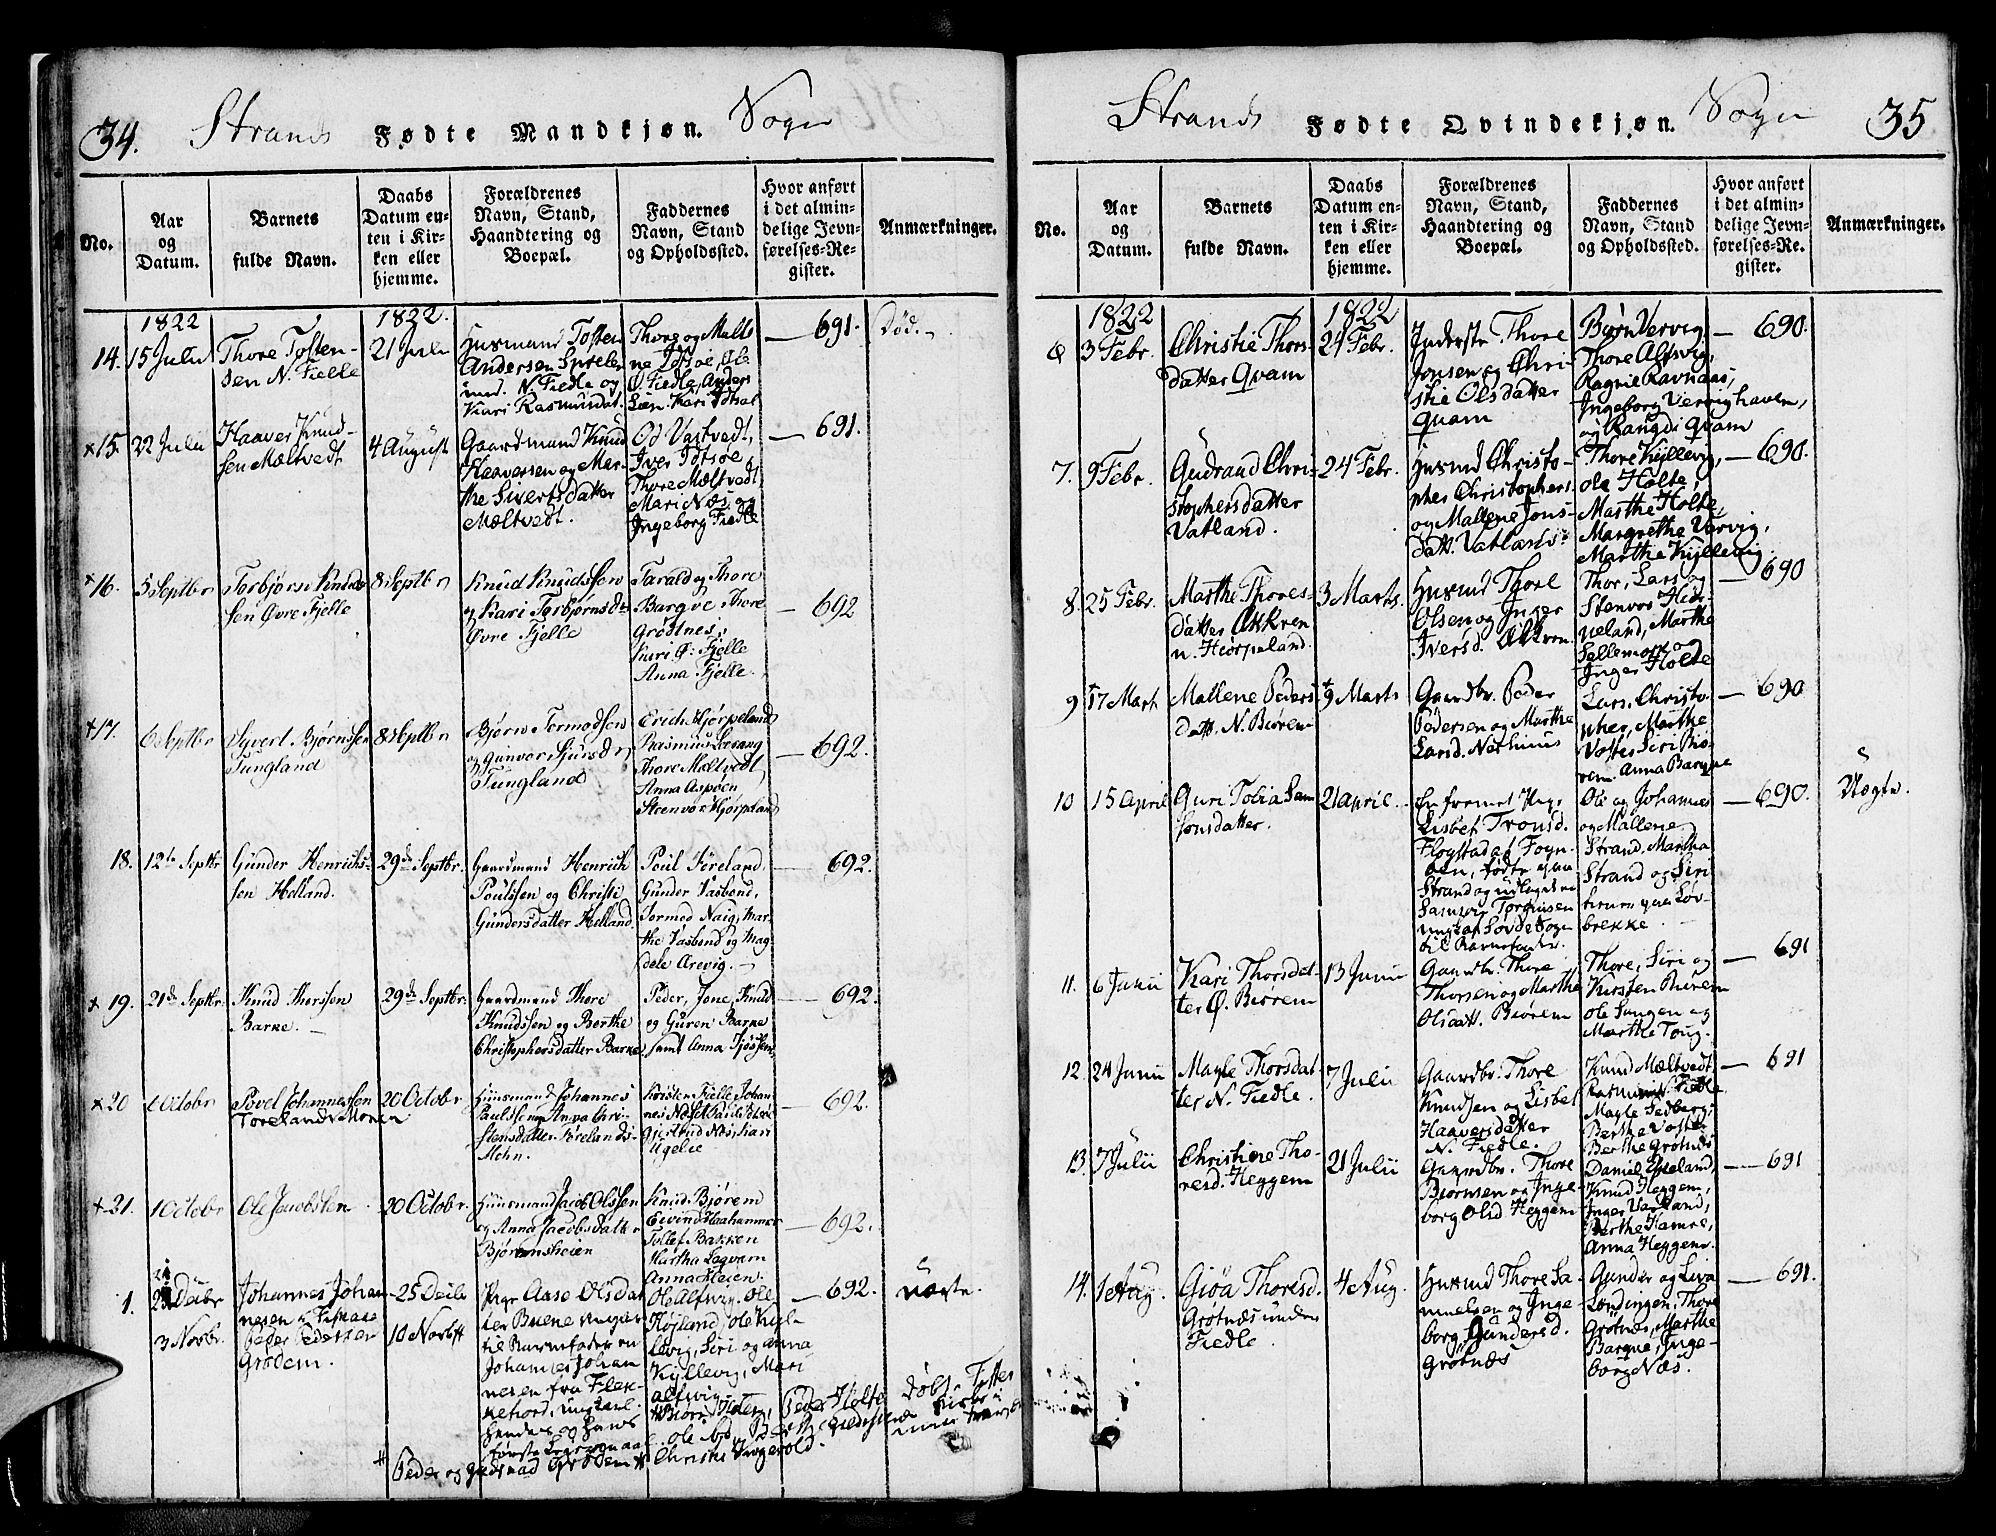 34. Strands Fødte Mandkjøn. Sogn
No.
Aar og Datum.
Barnets fulde Navn.
Daabs Datum enten i Kirken eller hjemme.
Forældrenes Navn, Stand, Haandtering og Boepæl.
Faddernes Navn, Stand og Opholdssted.
Hvor anført i det almindelige Jevnførelses-Register.
Anmærkninger.
1822
1822.
14.
15 Julii
Thore Tosten-
sen N. Fielle
21 Julii
Husmand Tosten
Andersen
N. Fiedle og
Kari Rasmusdat.
Thore og Malle
Fiedle, Anders
Kari Idtsøe
691.
Død.
×15.
22 Julii
Haaver Knud-
sen Mæltvedt
4 August
Gaardmand Knud
Haaversen og Mar-
the Sivertsdatter
Mæltvedt.
Od Vastvedt,
Iver Idtsøe,
Thore Mæltvedt,
Mari Næs og
Ingeborg Fiedle
691.
×16.
5 Septbr
Torbjørn Knud-
sen Øvre Fjelle
8 Septbr
Knud Knudssen
og Kari Torbjørnsd:
Øvre Fjelle
Tarald og Thore
Bargve, Thore
Grödtnes,
Kari Ø: Fjelle
Anna Fjelle.
692
×17.
6 Septbr
Syvert Bjørnssen
Tungland
8 Septbr
Bjørn Tormodsen
og Gunvor Sjursdr
Tungland
Erich Hjörpeland
Rasmus
Thore Mæltvedt
Anna Aspöen
Steenvor Hjörpeland
692.
18.
12te Septbr
Gunder Henrichs-
sen Helland.
29de Septbr.
Gaardmand Henrich
Poulssen og Christi
Gundersdatter Helland.
Poul Föreland,
Gunder Vasbend,
Tormod Naig, Mar-
the Vasbend og Mag-
dele Arevig.
692.
× 19.
21de Septbr.
Knud Thorssen
Barke.
29de Septbr.
Gaardmand Thore
Knudssen og Berthe
Christophersdatter Barke
Peder, Jone, Knud
og Guren Barke
samt Anna Tjössem
692.
×20
6 Octobr
Povel Johannessen
Torelands Moren
20 Octobr.
Huusmand Johannes
Paulssen og Anna Chri-
stensdatter Förelands
Mohn.
Kristen Fielle Johan-
nes Næs
Gjertrud Næs, Kari
Ugelie
692.
×21.
1 Octobr
Ole Jacobsten
20 Octobr.
Huusmand Jacob Olssen
og Anna Jacobsdatter
Bjøremsheien
Knud Bjørem
Eivind Haahammer
Tollef Bakken
Martha Lagvam
Anna Heien.
692.
1.
Decbr
3 Novbr.
Johannes Johan
nesen
Peder Pedersen
Grødem.
25 Decbr
10 Novbr
Pige Aase Olsdat
ter Buene
til Barnefader en
Johannes Johan
nesen fra Flek-
kefiord,
hendes og hans
første Leiermaal.
Ole Alsvig, Ole
Höjland, Ole Kyl-
levig, Siri og Anna
Kyllevig, Mari
Alsvig
692.
uægte.
Peder Holte
Peder og Gudmad Grödem
35 Strands Fødte Qvindekjøn. Sogn
No.
Aar og Datum.
Barnets fulde Navn.
Daabs Datum enten i Kirken eller hjemme.
Forældrenes Navn, Stand, Haandtering og Boepæl.
Faddernes Navn, Stand og Opholdssted.
Hvor anført i det almindelige Jevnførelses-Register.
Anmærkninger.
1822
1822
6
3 Febr.
Christie Thors-
datter Qvam
24 Febr.
Inderste Thore
Jonsen og Chri-
stie Olsdatter
Quam
Biørn Vervig
Thore Alsvig,
Ragnie Ravnaas,
Ingeborg Vervighaven,
og Rangdi Qvam
690.
7.
9 Febr.
Gudrand Chri-
stophersdatter
Vatland.
24 Febr.
Husmd Christo-
pher Christophers
og Mallene Jons-
datt. Vatland.
Thore Kyllevig,
Ole Holte,
Marthe Holte,
Margrethe Vervig,
Marthe Kyllevig
690.
8.
25 Febr.
Marthe Thores-
datter Akkren
u. Hiørpeland.
3 Marts.
Husmd Thore
Olsen og Inger
Iversd. Akkren.
Thor, Lars og
Stenvor Hiør-
peland, Marthe
Sellemork og
Inger Holte
690
9
17 Mart
Mallene Peders-
datt. N. Biørem
9 Marts
Gaardbr. Peder
Pedersen og Marthe
Larsd.
Lars, Christo-
pher, Marthe
Siri Biø-
rem. Anna Bargve
690
10
15 April
Guri Tobia Sam
sonsdatter.
21 April.
En fremmet Pige
Lisbet Tronsd.
Flogstad af Fogn-
øen, født paa
Strand og udlagt en
Samson Torginsen
ung af Lovde Sogn
til Barnefader.
Ole og Johannes
og Mallene
Strand, Martha
Strand og Siri
paa Löv-
brekke
690.
Uægte.
11.
6 Junii
Kari Thorsdat-
ter Ø. Biørem
13 Junii
Gaardbr. Thore
Thorsen og Marthe
Olsdatt. Biørem
Thore, Siri og
Kirsten Biørem
Ole Tungen og
Marthe Toug.
691
12.
24 Junii
Magle Thorsdat
ter N. Fiedle.
7 Julii
Gaardbr. Thore
Knudsen og Lisbet
Haaversdatter
N. Fiedle.
Knud Mæltvedt
Rasmus N. Fiedle
Magle Sedberg,
Berthe
Berthe Grötnæs
691
13.
7 Julii
Christine Tho-
resd. Heggem
21 Julii
Gaardbr. Thore
Biörnsen og Inge-
borg Olsd Heggem
Daniel
Knud Heggem,
Inger Vatland,
Berthe Hamre,
Anna Heggem.
691
14.
1 Aug.
Giöa Thorsd.
Grötnæs under
Fiedle.
4 Aug.
Husmd Thore Sa-
muelsen og Inge
borg Gundersd.
Grötnæs
Gunder og Siva
Londingen, Thore
Grötnæs, Marthe
Bargue, Inge-
borg Næs.
691.